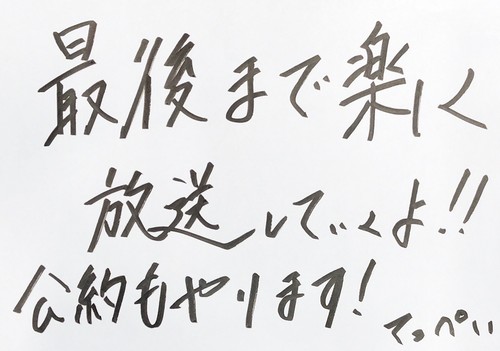 最後まで楽しく
放送していくよ!!
公約もやります!
てっぺい